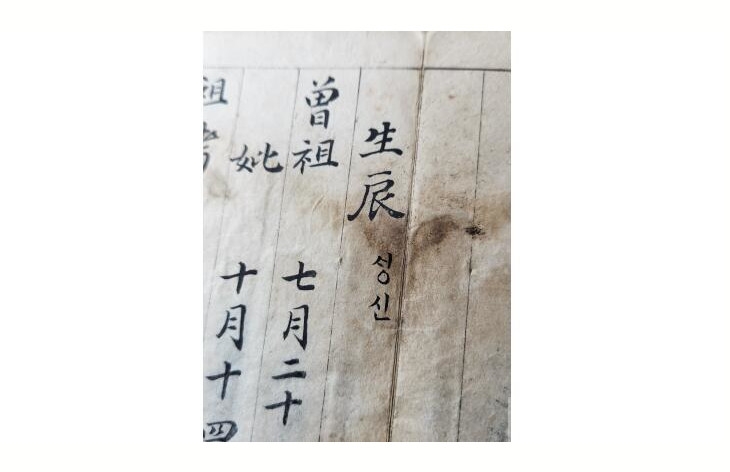 生辰 성신
曽祖 七月二十
妣 十月十四
祖考